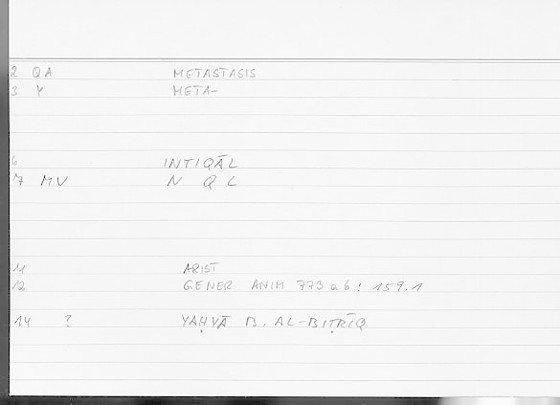 2 QA METASTASIS
3 Y META-
6 INTIQĀL
7 MV N Q L
11 ARIST
12 GENER ANIM 773 a 6 : 159.1
14 ? YAḤYĀ B. AL-BIṬRĪQ